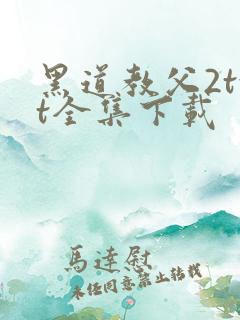 黑道教父2tx
t全集下载
馬達慰
未经同意禁止转载